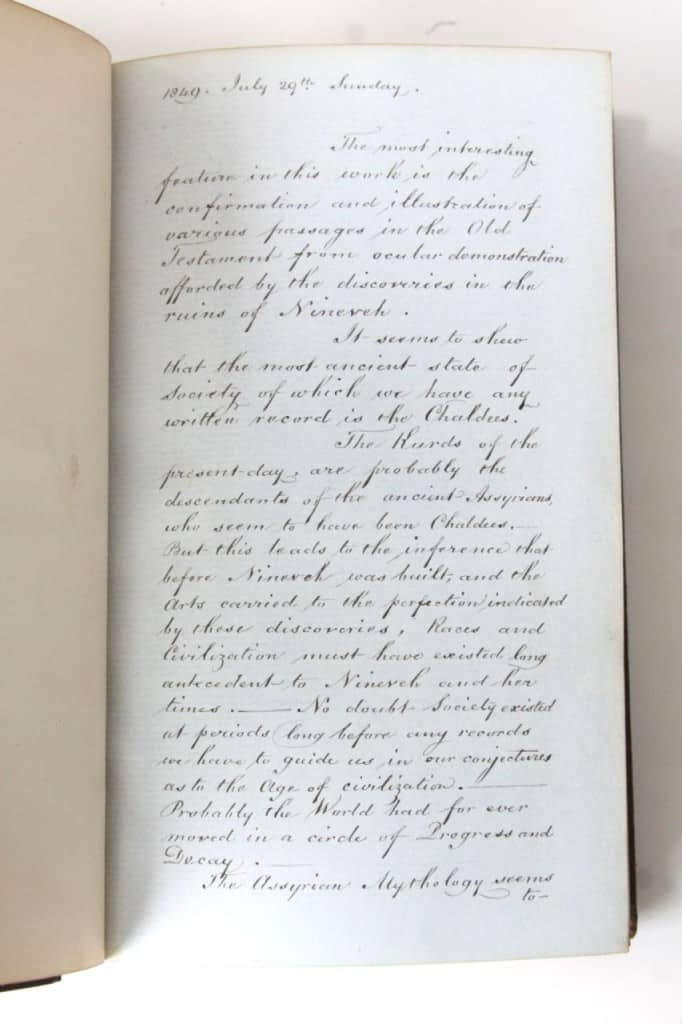 1849. July 29th Sunday.
The most interesting
feature in this work is the
confirmation and illustration of
various passages in the Old
Testament from ocular demonstration
afforded by the discoveries in the
ruins of Nineveh.
It seems to shew
that the most ancient state of
Society of which we have any
written record is the Chaldees.
The Kurds of the
present day, are probably the
descendants of the ancient Assyrians,
who seem to have been Chaldees.—
But this leads to the inference that
before Nineveh was built, and the
Arts carried to the perfection indicated
by these discoveries, Races and
Civilization must have existed long
antecedent to Nineveh and her
times.— No doubt Society existed
at periods long before any records
we have to guide us in our conjectures
as to the Age of civilization.—
Probably the World had for ever
moved in a circle of Progress and
Decay.—
The Assyrian Mythology seems
to-